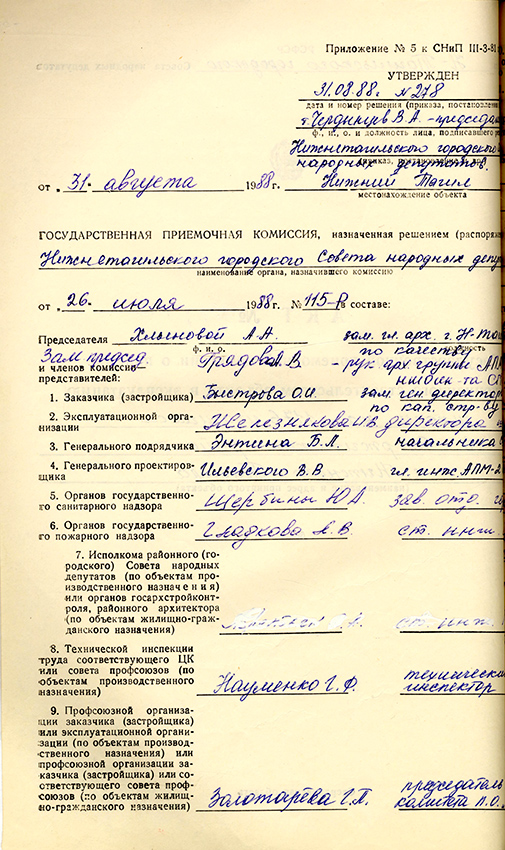 Приложение № 5 к СНиП III-3-81
УТВЕРЖДЕН
31.08.88г. № 278
дата и номер решения (приказа, постановлен
В.А. - председа
ф., и., о. и должность лица, подписавшего
Нижнетагильского городского
народных депутатов.
от „ 31 " августа 1988 г. Нижний Тагил
местонахождение объекта
ГОСУДАРСТВЕННАЯ ПРИЕМОЧНАЯ КОМИССИЯ, назначенная решением (распоряж
Нижнетагильского городского Совета народных депу
наименование органа, назначившего комиссию
от „ 26. " июля 1988 г. № 115-Р в составе:
Председателя Хлыновой А.А. зам. гл. арх. г. Н-Та
ф. и. о. по качеству
Зам. председ. Грядова А.В - рук. арх. группы АП
и членов комиссии —
представителей:
1. Заказчика (застройщика) Быстрова О.И. зам. ген. директор
по кап. стр-ву
2. Эксплуатационной орга-
низации Железнякова И.В. директора
3. Генерального подрядчика Энтина Б.Л. начальника
4. Генерального проектиров-
щика Ильевского В.В. гл. инж. АПМ-2
5. Органов государственного
санитарного надзора Щербины Ю.А. зав. отд.
6. Органов государственного
пожарного надзора Гладкова А.В. ст. инж.
7. Исполкома районного (го-
родского) Совета народных
депутатов (по объектам про-
изводственного назначения)
или органов госархстройконт-
роля, районного архитектора
(по объектам жилищно-граж-
данского назначения) ст. инж.
8. Технической инспекции
труда соответствующего ЦК
или совета профсоюзов (по
объектам производственного
назначения) Науменко Г.Ф. технически
инспектор
9. Профсоюзной организа-
ции заказчика (застройщика)
или эксплуатационной органи-
зации (по объектам производ-
ственного назначения) или
профсоюзной организации за-
казчика (застройщика) или со-
ответствующего совета проф-
союзов (по объектам жилищ-
но-гражданского назначения) Золотарёва Г.П. председатель
комитета П.О.